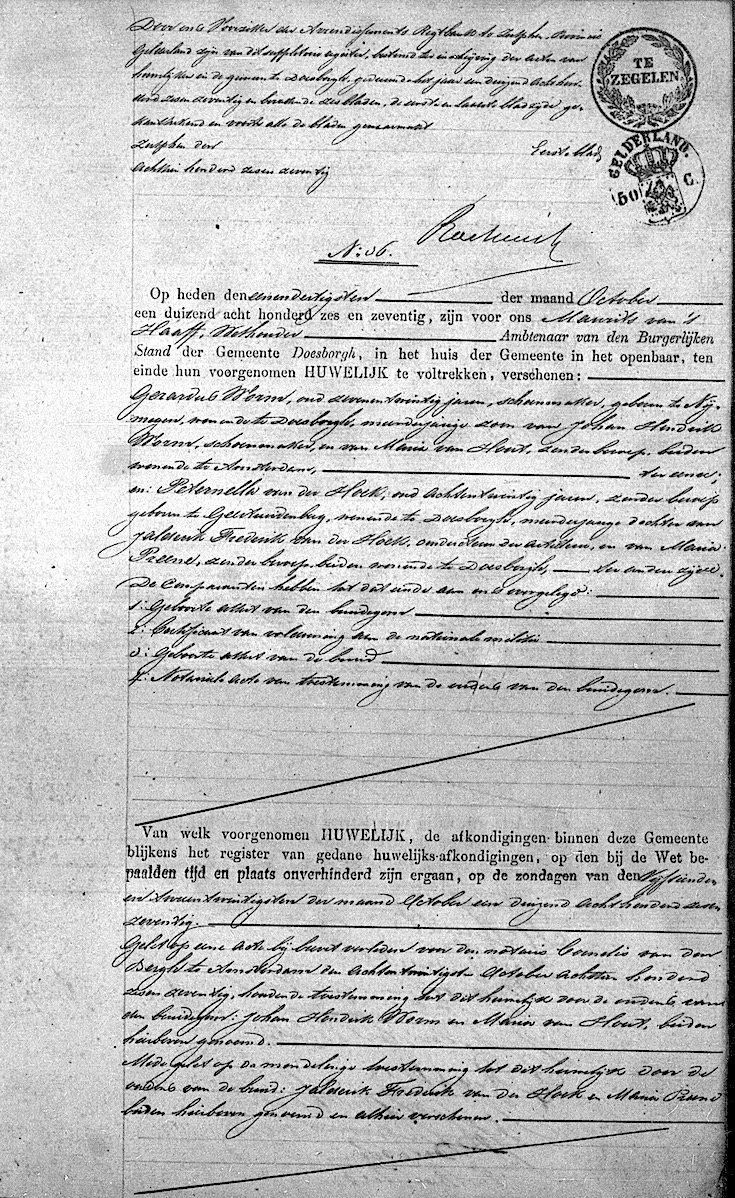 Door ons Voorzitter der Arrondissements Regtbank te Zutphen, Provincie
Gelderland zijn van dit suppletoir register, bestemd ter inschrijving der Acten van
huwelijken in de gemeente Doesborgh, gedurende het jaar een duizend acht hon-
derd zesen zeventig en bevattende zes bladen, de eerste en laatste bladzijde ge-
kanttekend en voorts alle de bladen gewaarmerkt
Zutphen den
Eerste blad
Achttien honderd zesen zeventig
TE
ZEGELEN
GELDERLAND.
50 C.
No: 36.
Op heden den eenendertigsten der maand October
een duizend acht honderd zes en zeventig, zijn voor ons Maurits van 't
Haaff, Wethouder Ambtenaar van den Burgerlijken
Stand der Gemeente Doesborgh, in het huis der Gemeente in het openbaar, ten
einde hun voorgenomen HUWELIJK te voltrekken, verschenen:
Gerardus Worm, oud zevenentwintig jaren, schoenmaker, geboren te Nij-
megen, wonende te Doesborgh, meerderjarige zoon van Johan Hendrik
Worm, schoenmaker, en van Maria van Hout, zonder beroep, beiden
wonende te Amsterdam, ter eenre;
en: Peternella van der Hoek, oud achtentwintig jaren, zonder beroep
geboren te Geertruidenberg, wonende te Doesborgh, meerderjarige dochter van
Jalderik Frederik van der Hoek, onderdeen der Artillerie, en van Maria
Preene, zonder beroep, beiden wonende te Doesborgh, ter andere zijde.
De Comparanten hebben tot dat einde aan ons overgelegd:
1: Geboorte attest van den bruidegom
2: Certificaat van voldoening aan de nationale militie
3: Geboorte attest van de bruid
4: Notariele acte van toestemming van de ouders van den bruidegom.
Van welk voorgenomen HUWELIJK, de afkondigingen binnen deze Gemeente
blijkens het register van gedane huwelijks-afkondigingen, op den bij de Wet be-
paalden tijd en plaats onverhinderd zijn ergaan, op de zondagen van den Vijftienden
en tweeentwintigsten der maand October een duizend acht honderd zesen
zeventig.
Gelet op eene acte bij brevet verleden voor den notaris Cornelis van den
Bergh te Amsterdam den Achtentwintigsten October Achttien honderd
zesen zeventig, houdende toestemming tot dit huwelijk door de ouders van
den bruidegom: Johan Hendrik Worm en Maria van Hout, beiden
hierboven genoemd.
Mede gelet op de mondelinge toestemming tot dit huwelijk door de
ouders van de bruid: Jalderik Frederik van der Hoek en Maria Preene
beiden hierboven genoemd en alhier verschenen.